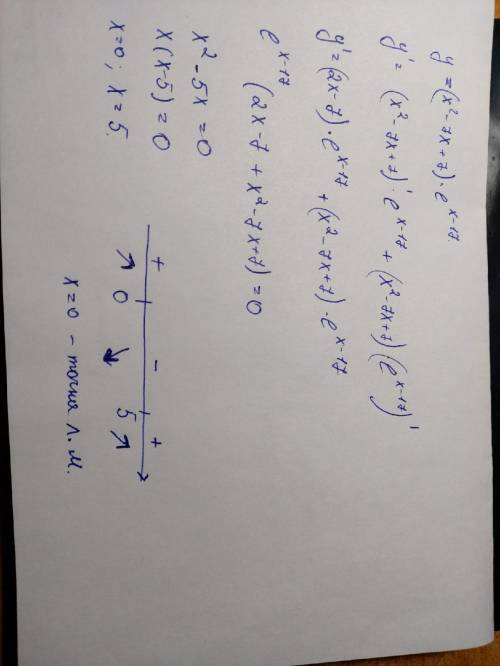 y = (x² - 7x + 7) · e^(x-17)
y' = (x² - 7x + 7)' e^(x-17) + (x² - 7x + 7) (e^(x-17))'
y' = (2x - 7) · e^(x-17) + (x² - 7x + 7) · e^(x-17)
e^(x-17) (2x - 7 + x² - 7x + 7) = 0
x² - 5x = 0
x(x-5) = 0
x = 0; x = 5.
+ - +
0 5
x=0 - точка л. м.